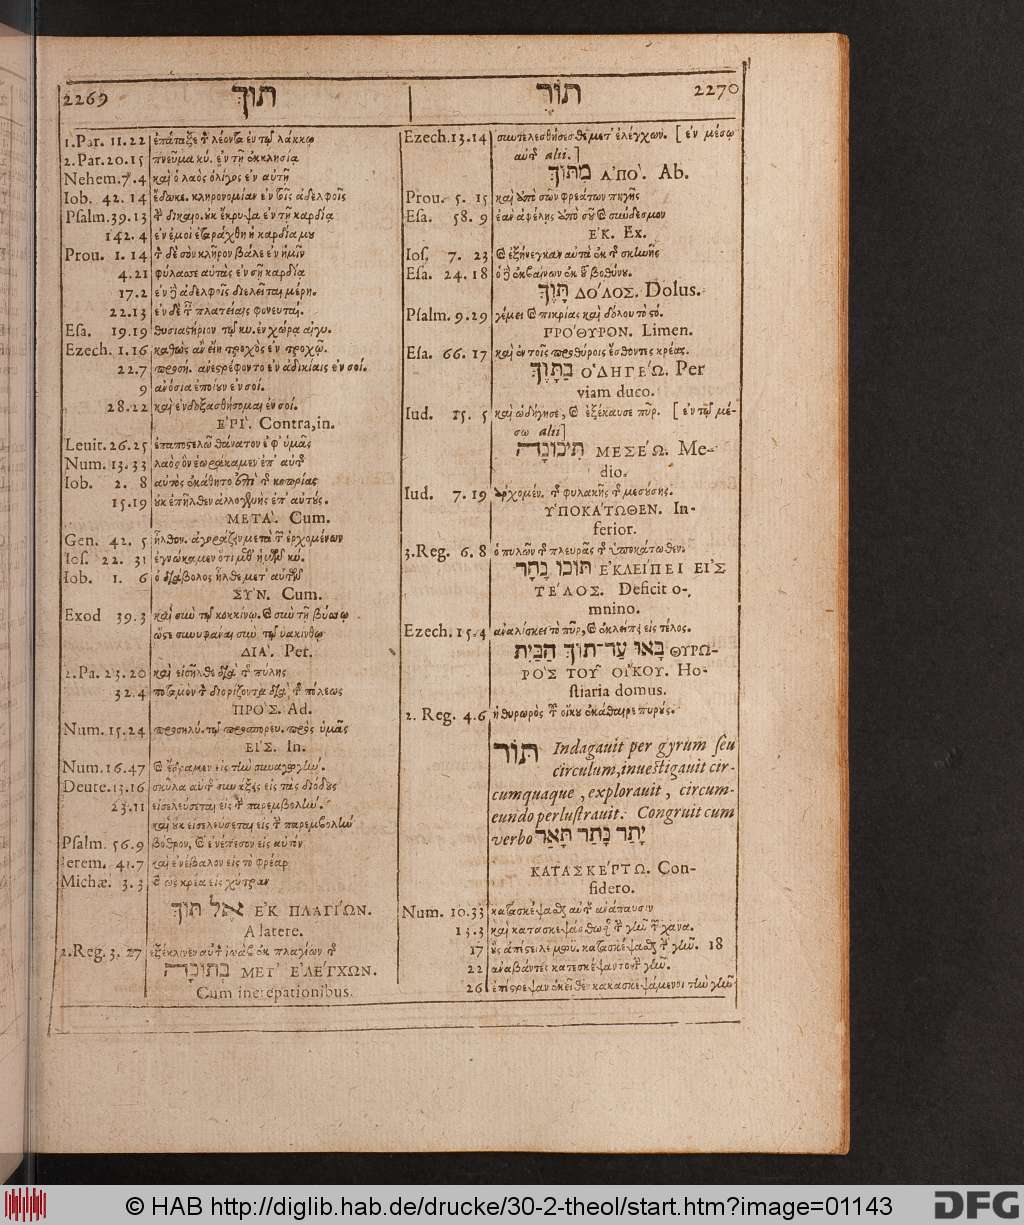 2269 תוך
1.Par. 11.22 ἐπάταξε τ λέοντα ἐν τῷ λάκκῳ
2.Par.20.15 πνεῦμα κύ. ἐν τῇ ἐκκλησίᾳ
Nehem.7.4 καὶ ὁ λαὸς ὀλίγος ἐν αὐτῇ
Iob. 42.14 ἔδωκε. κληρονομίαν ἐν τοῖς ἀδελφοῖς
Psalm.39.13 δικαιο. οὐκ ἔκρυψα ἐν τῇ καρδίᾳ
142.4 ἐν ἐμοὶ ἐταράχθη ἡ καρδία μου
Prou. 1.14 τ δὲ σὸν κλῆρον βάλε ἐν ἡμῖν
4.21 φύλασσε αὐτὰς ἐν σῇ καρδίᾳ
17.2 ἐν ἀδελφοῖς διελεῖται μέρη.
22.13 ἐν δὲ πλατείαις φονευταί.
Esa. 19.19 θυσιαστήριον τῷ κυ. ἐν χώρᾳ αἰγυ.
Ezech. 1.16 καθὼς ἂν εἴη τροχὸς ἐν τροχῷ.
22.7 προσή. ἀνεστρέφοντο ἐν ἀδικίαις ἐν σοί.
9 ἀνόσια ἐποίουν ἐν σοί.
28.22 καὶ ἐνδοξασθήσομαι ἐν σοί.
ἘΡΙ'. Contra, in.
Leuit.26.25 ἐπαποστελῶ θάνατον ἐφ' ὑμᾶς
Num. 13.33 λαὸς ὃν ἑωράκαμεν ἐπ' αὐτ
Iob. 2. 8 αὐτὸς ἐκάθητο ἐπὶ τ κοπρίας
15.19 οὐκ ἐπῆλθεν ἀλλογενὴς ἐπ' αὐτούς.
ΜΕΤΑ'. Cum.
Gen. 42. 5 ἦλθον. ἀγοράζειν μετὰ τ ἐρχομένων
Ios. 22. 31 ἐγνώκαμεν ὅτι μεθ' ἡμῶν κύ.
Iob. 1. 6 ὁ διάβολος ἦλθε μετ' αὐτῶν
ΣΥ'Ν. Cum.
Exod 39.3 καὶ σὺν τῷ κοκκίνῳ. καὶ σὺν τῇ βύσσῳ
ὥστε συνυφᾶναι σὺν τῷ ὑακίνθῳ
ΔΙΑ'. Per.
2.Pa. 23.20 καὶ εἰσῆλθε διὰ τ πύλης
32.4 ποταμὸν τ διορίζοντα διὰ τ πόλεως
ΠΡΟ'Σ. Ad.
Num. 15.24 προσηλύ. τῷ προσπορευ. πρὸς ὑμᾶς
ΕΙ'Σ. In.
Num.16.47 καὶ ἔδραμεν εἰς τὴν συναγωγήν.
Deute.13.16 σκῦλα αὐτ συνάξεις εἰς τὰς διόδους
23.11 εἰσελεύσεται εἰς τ παρεμβολήν.
καὶ οὐκ εἰσελεύσεται εἰς τ παρεμβολήν
Psalm. 56.9 βόθρον, καὶ ἐνέπεσον εἰς αὐτόν
Ierem. 41.7 καὶ ἐνέβαλον εἰς τὸ φρέαρ
Michæ. 3.3 ὡς κρέα εἰς χύτραν
אל תוך ἘΚ ΠΛΑΓΙ'ΩΝ.
A latere.
2.Reg. 3. 27 ἐξέκλινεν αὐτ ἰωὰβ ἐκ πλαγίων τ
בתוכה ΜΕΤ' ἘΛΕ'ΓΧΩΝ.
Cum increpationibus.
תור 2270
Ezech.13.14 συντελεσθήσεσθε μετ' ἐλέγχων. [ ἐν μέσῳ
αὐτ alii.]
מתוך ἈΠΟ'. Ab.
Prou. 5. 15 καὶ ἀπὸ σῶν φρεάτων πηγῆς
Esa. 58. 9 ἐὰν ἀφέλῃς ἀπὸ σοῦ σύνδεσμον
ἘΚ. Ex.
Ios. 7. 23 καὶ ἐξήνεγκαν αὐτὰ ἐκ τ σκηνῆς
Esa. 24.18 ὁ ἐκβαίνων ἐκ βοθύνου.
תוך ΔΟ'ΛΟΣ. Dolus.
Psalm. 9.29 γέμει καὶ πικρίας καὶ δόλου τὸ στό.
ΠΡΟ'ΘΥΡΟΝ. Limen.
Esa. 66. 17 καὶ ἐν τοῖς προθύροις ἔσθοντες κρέας.
בתוך ὉΔΗΓΕ'Ω. Per
viam duco.
Iud. 15. 5 καὶ ὡδήγησε, καὶ ἐξέκαυσε πῦρ. [ ἐν τῷ μέ-
σῳ alii]
תיכונה ΜΕΣΕ'Ω. Me-
dio.
Iud. 7. 19 ἀρχομέν. τ φυλακῆς τ μεσούσης.
ὙΠΟΚΑ'ΤΩΘΕΝ. In-
ferior.
3.Reg. 6. 8 ὁ πυλῶν τ πλευρᾶς τ ὑποκάτωθεν.
תוכו נחר ἘΚΛΕΙ'ΠΕΙ ΕΙ'Σ
ΤΕ'ΛΟΣ. Deficit o-
mnino.
Ezech. 15.4 ἀναλίσκει τὸ πῦρ, καὶ ἐκλείπει εἰς τέλος.
באו עד־תוך הבית ΘΥΡΩ-
ΡΟ'Σ ΤΟΥ͂ ΟΙ'ΚΟΥ. Ho-
stiaria domus.
2. Reg. 4.6 ἡ θυρωρὸς τ οἴκου ἐκάθαιρε πυρούς.
תור Indagauit per gyrum seu
circulum, inuestigauit cir-
cumquaque, explorauit, circum-
eundo perlustrauit. Congruit cum
verbo יתר נתר תאר
ΚΑΤΑΣΚΕ'ΠΤΩ. Con-
sidero.
Num. 10.33 κατασκέψασθαι αὐτ ἀνάπαυσιν
13.3 καὶ κατασκεψάσθωσαν τ γῆν τ χανα.
17 οὓς ἀπέστειλε μωϋ. κατασκέψασθαι τ γῆν. 18
22 ἀναβάντες κατεσκέψαντο τ γῆν.
26 ἐπέστρεψαν ἐκεῖθεν κατασκεψάμενοι τὴν γῆν
© HAB http://diglib.hab.de/drucke/30-2-theol/start.htm?image=01143
DFG